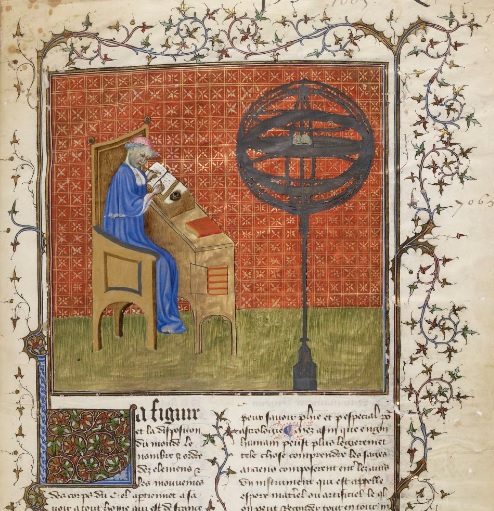 7065
la figur
et la disposion
du monde le
nombre & ordre
dez elemens &
les mouvemēs
des corps du ciel aptienet a sa
voir a tout home qui est de franc
pour savoir plus et especal
astrologie Mez afin que engin
humain peust plus legieremet
tele chose comprendre les sages
anciens composerent
un instrument qui est appelle
espere materiel ou artificiel le ql
on peut regarder tout entour